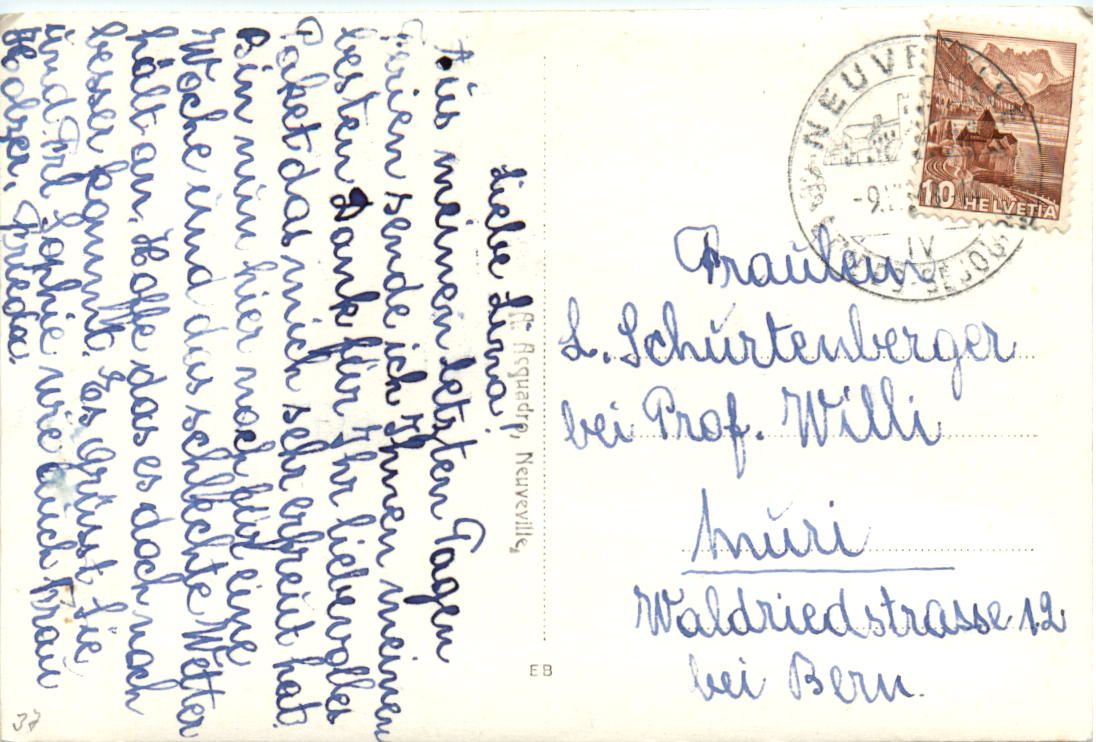 Liebe Lina!
Aus meinen letzten Tagen
Ferien sende ich Ihnen meinen
besten Dank für Ihr liebevolles
Paket das mich sehr erfreut hat.
Bin nun hier noch für eine
Woche und das schlechte Wetter
hält an. Hoffe das es doch noch
besser kommt. Es Grüsst Sie
und Frl Sophie wie auch Frau
Holzer, Frieda.
A. Acquadro, Neuveville,
EB
37
NEUVE
-9.
IV
SEJOU
10 HELVETIA
Fraülein
L. Schürtenberger
bei Prof. Willi
Muri
Waldriedstrasse 12
bei Bern.